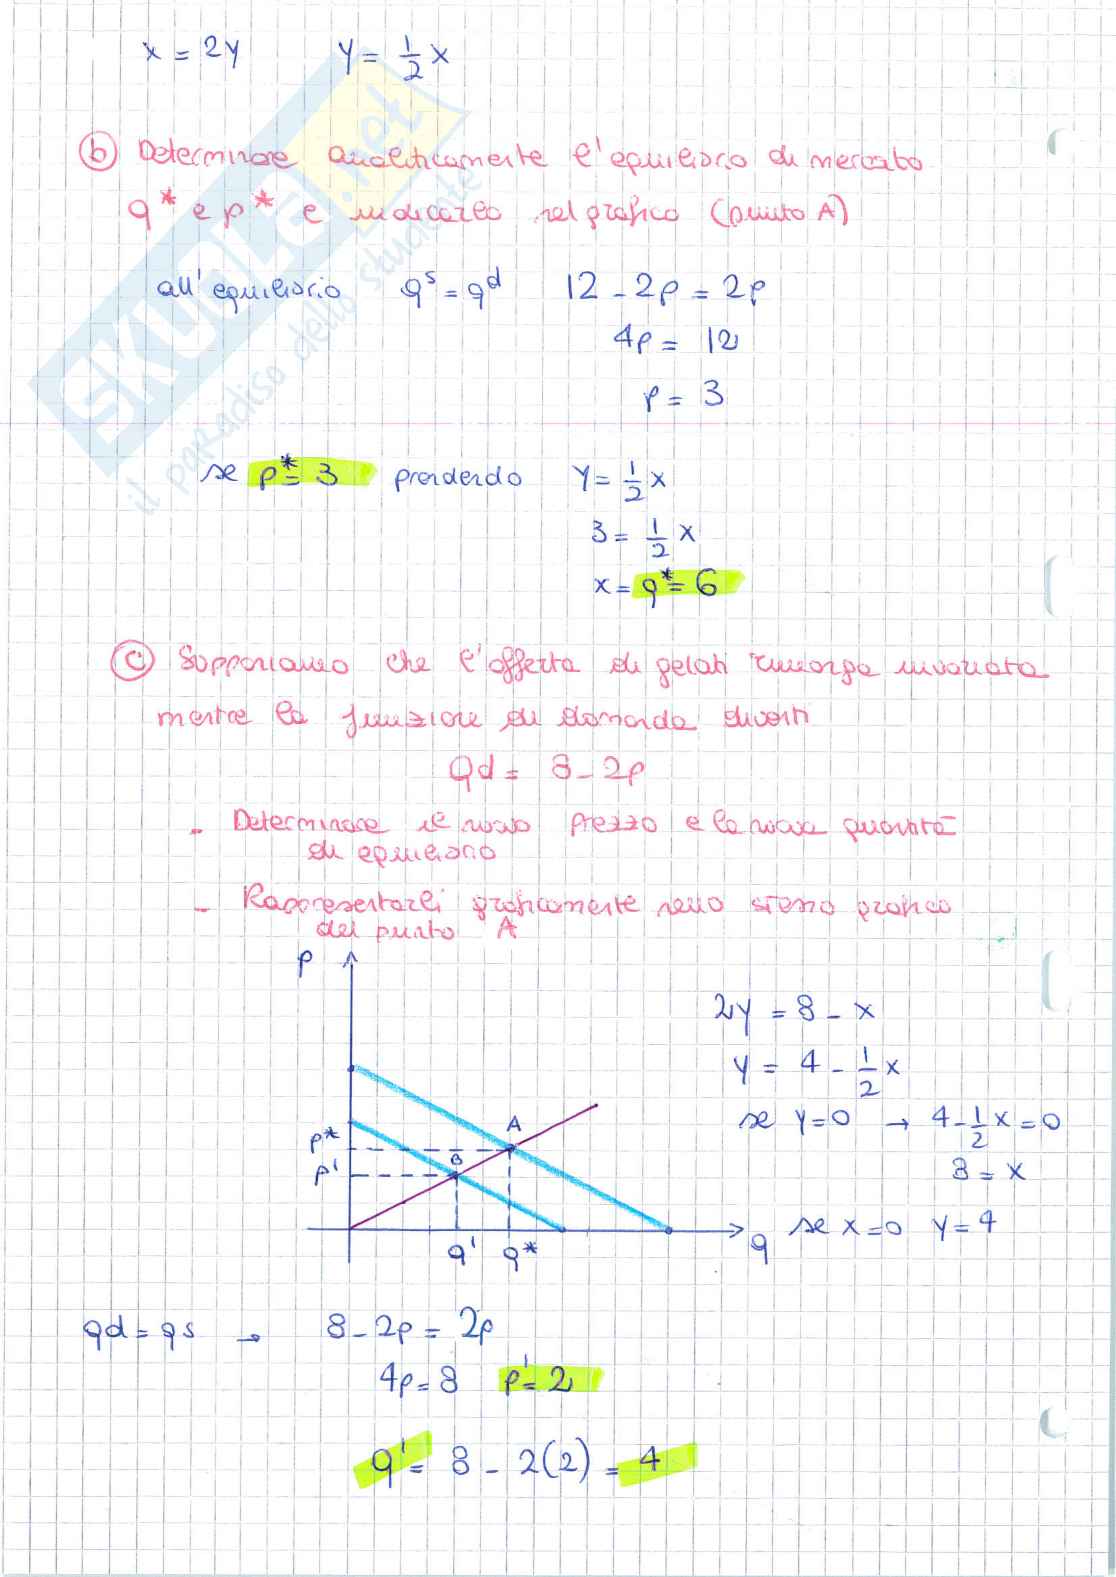 x = 2y y = 1/2 x
b) Determinare analiticamente l'equilibrio di mercato
q* e p* e indicarlo nel grafico (punto A)
all'equilibrio qˢ = qᵈ 12 - 2p = 2p
4p = 12
p = 3
se p* = 3 prendendo y = 1/2 x
3 = 1/2 x
x = q* = 6
c) Supponiamo che l'offerta di gelati rimanga invariata
mentre la funzione di domanda diventi
Qd = 8 - 2p
- Determinare il nuovo prezzo e la nuova quantità
di equilibrio
- Rappresentarli graficamente nello stesso grafico
del punto A
p
2y = 8 - x
y = 4 - 1/2 x
se y = 0 → 4 - 1/2 x = 0
8 = x
se x = 0 y = 4
A
p*
B
p'
q' q* q
qd = qs → 8 - 2p = 2p
4p = 8 p' = 2
q' = 8 - 2(2) = 4
SKUOLA.net
il paradiso dello studente